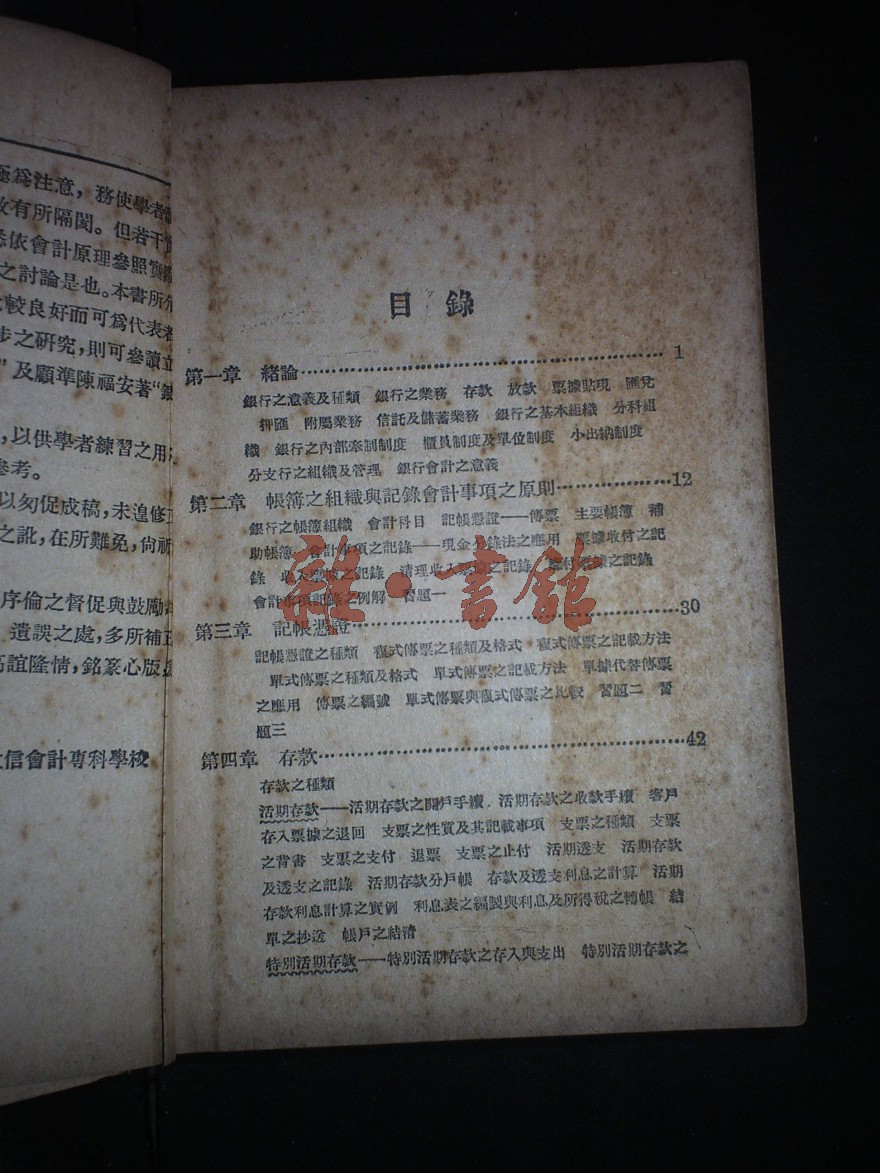 極爲注意，務使學者
有所隔閡。但若干
悉依會計原理參照實
之討論是也。本書所
較良好而可爲代表者
步之研究，則可參讀立
”及顧準陳福安著“銀
，以供學者練習之用
參考。
以匆促成稿，未遑修
之訛，在所難免，尙祈
序倫之督促與鼓勵
遺誤之處，多所補正
高誼隆情，銘篆心版
信會計專科學校
目錄
第一章 緒論 1
銀行之意義及種類 銀行之業務 存款 放款 票據貼現 匯兌
押匯 附屬業務 信託及儲蓄業務 銀行之基本組織 分科組
織 銀行之內部牽制制度 櫃員制度及單位制度 小出納制度
分支行之組織及管理 銀行會計之意義
第二章 帳簿之組織與記錄會計事項之原則 12
銀行之帳簿組織 會計科目 記帳憑證——傳票 主要帳簿 補
助帳簿 會計事項之記錄——現金分錄法之應用 票據收付之記
錄 收入票據之記錄 清理收入票據之記錄 付票據之記錄
會計事項記錄之例解 習題一
第三章 記帳憑證 30
記帳憑證之種類 複式傳票之種類及格式 複式傳票之記載方法
單式傳票之種類及格式 單式傳票之記載方法 單據代替傳票
之應用 傳票之編號 單式傳票與複式傳票之比較 習題二 習
題三
第四章 存款 42
存款之種類
活期存款——活期存款之開戶手續 活期存款之收款手續 客戶
存入票據之退回 支票之性質及其記載事項 支票之種類 支票
之背書 支票之支付 退票 支票之止付 活期透支 活期存款
及透支之記錄 活期存款分戶帳 存款及透支利息之計算 活期
存款利息計算之實例 利息表之編製與利息及所得稅之轉帳 結
單之抄送 帳戶之結清
特別活期存款——特別活期存款之存入與支出 特別活期存款之
雜·書館